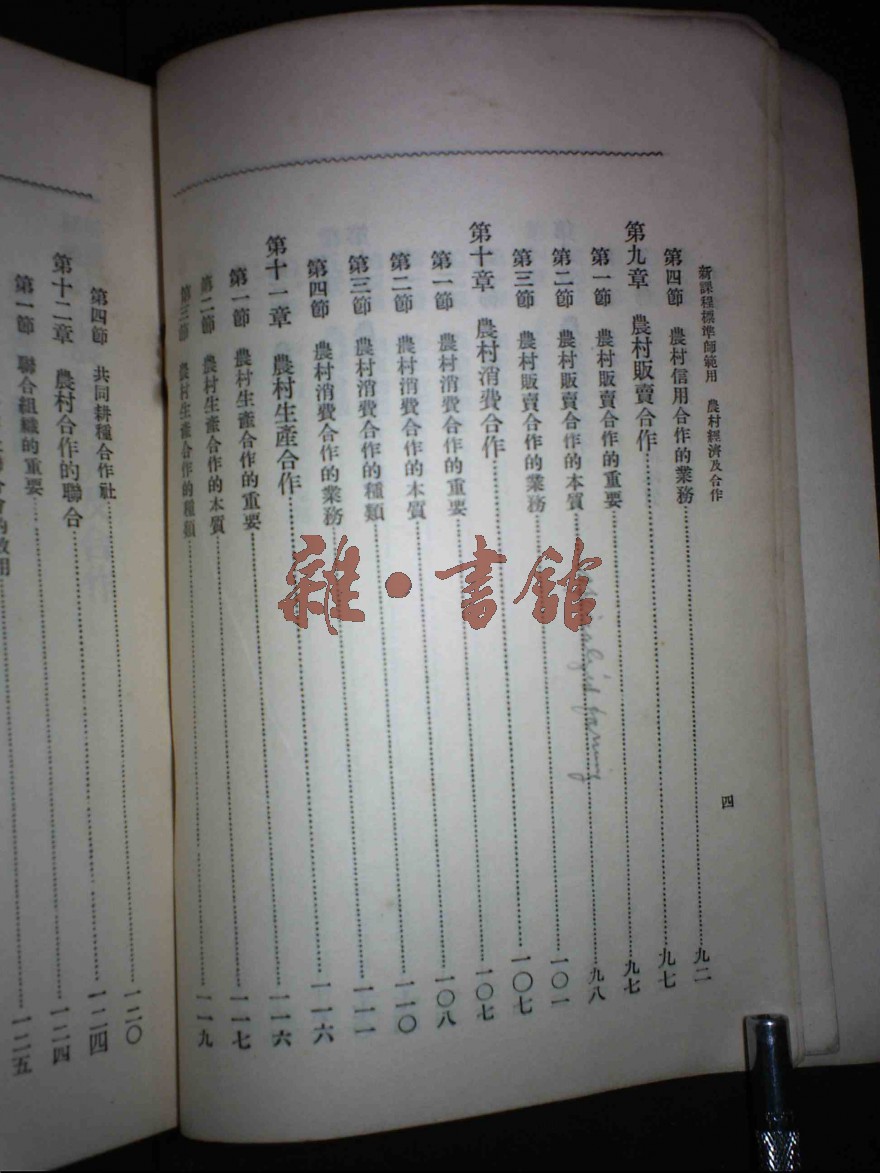 新課程標準師範用 農村經濟及合作
四
第四節 農村信用合作的業務……九二
第九章 農村販賣合作……九七
第一節 農村販賣合作的重要……九七
第二節 農村販賣合作的本質……九八
farming
第三節 農村販賣合作的業務……一〇一
第十章 農村消費合作……一〇七
第一節 農村消費合作的重要……一〇七
第二節 農村消費合作的本質……一〇八
第三節 農村消費合作的種類……一一〇
第四節 農村消費合作的業務……一一一
第十一章 農村生產合作……一一六
第一節 農村生產合作的重要……一一六
第二節 農村生產合作的本質……一一七
第三節 農村生產合作的種類……一一九
第四節 共同耕種合作社……一二〇
第十二章 農村合作的聯合……一二四
第一節 聯合組織的重要……一二四
一二五
雜·書館